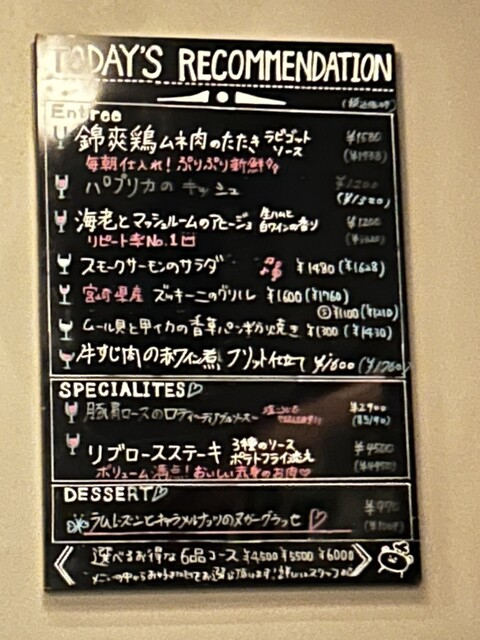 TODAY'S RECOMMENDATION
Entree
錦爽鶏ムネ肉のたたき ラビゴットソース ¥1580
毎朝仕入れ!ぷりぷり新鮮
パプリカのキッシュ ¥1200
(¥1320)
海老とマッシュルームのアヒージョ 生ハムと白ワインの香り ¥1200
リピート率No.1
スモークサーモンのサラダ ¥1480 (¥1628)
宮崎県産 ズッキーニのグリル ¥1600 (¥1760)
Ⓢ ¥1100 (¥1210)
ムール貝と甲イカの香草パン粉焼き ¥1300 (¥1430)
牛すじ肉の白ワイン煮 フリット仕立て ¥1600 (¥1760)
SPECIALITES♡
豚肩ロースのロティ ¥2900
リブロースステーキ 3種のソース ポテトフライ添え ¥4500
ボリューム満点!おいしい赤身のお肉♡
DESSERT♡
ラムレーズンとキャラメルナッツのヌガーグラッセ♡
選べるお得な 6品コース ¥4,500 ¥5500 ¥6000